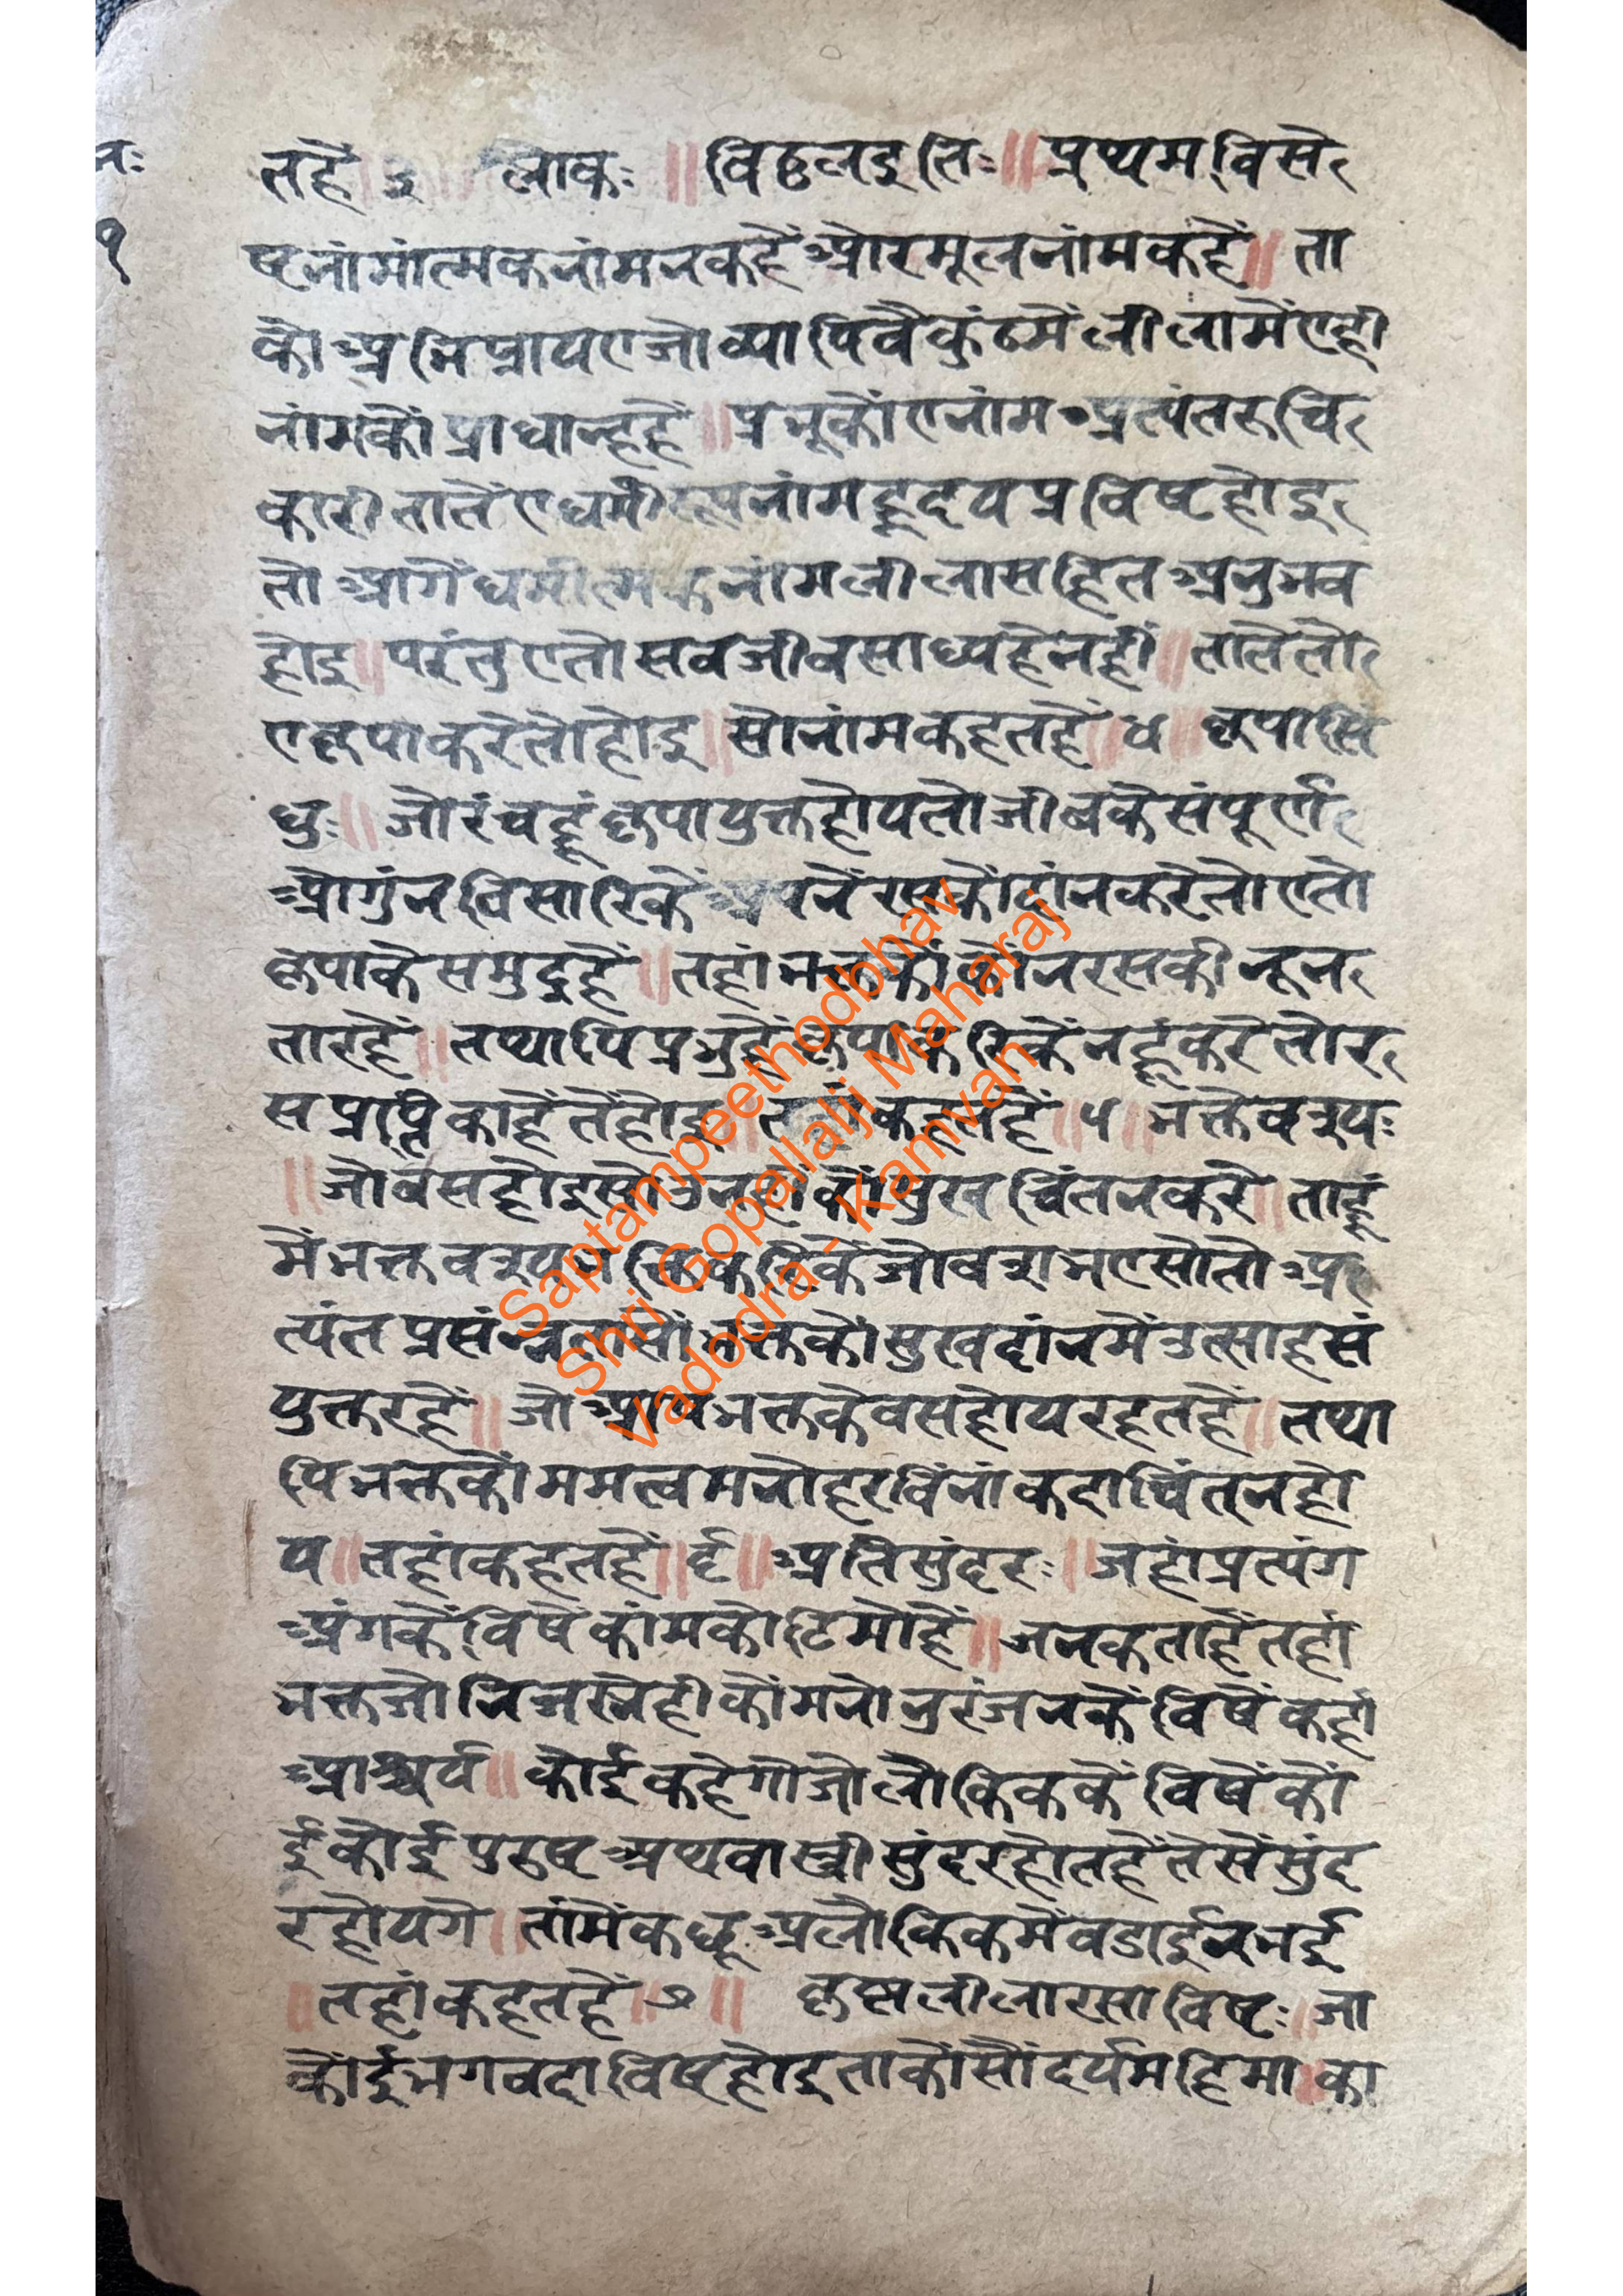 तहै ३ लोकः ॥ विठ्ठलइतिः ॥ प्रथम विसे
ष्टनांमांत्मकनांमनकहैं औरमूलनांमकहै ॥ ता
कौ अभिप्रायएजोव्यापिवैकुंठमें लीलामेंएही
नांमकौं प्राधान्हहैं ॥ प्रभूकौंएनांम अत्यंतरुचि
कारीतातेंएधर्मीरूपनांमहृदयप्रविष्टहोइ
तो आगेंधर्मात्मकनांमलीलासहित अनुभव
होइ ॥ परंतुएतोसबजीवसाध्यहेनहीं ॥ तातेतो
एकृपाकरेतोहोइ ॥ सोनांमकहतहैं ॥ ४ ॥ कृपासिं
धुः ॥ जोरंचहूंकृपायुक्तहोयतोजीवकेसंपूर्ण
औगुंनविसारिकें अपनेंरसकौदांनकरेतोएतो
कृपाकेसमुद्रहैं ॥ तहांभक्तकौंकोनरसकीनून
तारहैं ॥ तथापिप्रभुहैंकृपाकरिकेंनहूंकरेतोर
सप्राप्तिकाहैतेंहोइ ॥ तहांकहतहैं ॥ ५ ॥ भक्तैवश्यः
॥ जोवसहोइसोउनहीकौंमुखचिंतनकरे ॥ ताहू
मेंभक्तवश्यभक्तिकरिकेंजोवशभएसोतो अ
त्यंतप्रसंन्नतासों भक्तकोंसुखदांनमेंउत्साहसं
युक्तरहैं ॥ जो आपभक्तकेवसहोयरहतहैं ॥ तथा
पिभक्तकौंममत्वमनोहरविंनांकदाचिंत्नहो
य ॥ तहांकहतहैं ॥ ६ ॥ अतिसुंदरः ॥ जहांप्रत्यंग
अंगकेंविषेंकांमकोटिमोहैं ॥ जनकताहैंतहां
भक्तजोनिजस्नेहीकौंमनोनुरंजनकेंविषेंकहां
आश्चर्य ॥ कोईकहेगोजोलौकिककेंविषेंकों
ईकोईपुरुष अथवास्त्रीसुंदरहोतहैंतेसेंसुंद
रहोयगे ॥ तांमेंकछू अलौकिकमेंवडाईनभई
॥ तहांकहतहैं ॥ ७ ॥ कृष्णलीलारसाविष्टः ॥ जा
कोंईभगवदाविष्टहोइताकौंसौंदर्यमहिमा ॥ का